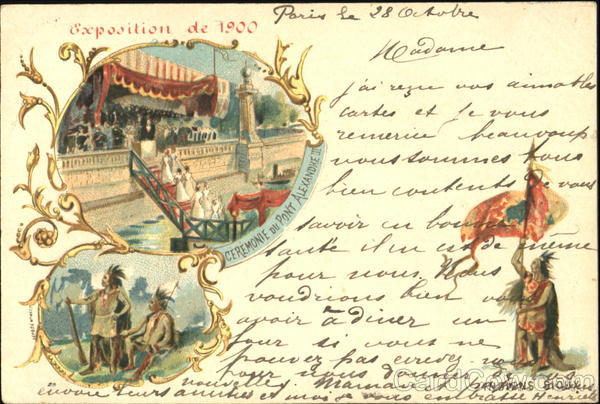 Exposition de 1900
Paris le 28 Octobre
Madame
j'ai reçue vos aimables
cartes et je vous
remercie beaucoup
nous sommes tous
bien contents de vous
savoir en bonne
santé il en est de même
pour nous. Nous
voudrions bien vous
avoir à diner un
jour si vous ne
pouvez pas
pour nous donner de vos
nouvelles Maman
envoie leurs amitiés et moi je vous embrasse Henriette
CEREMONIE DU PONT ALEXANDRE III
INDIENS SIOUX
CardCow.com